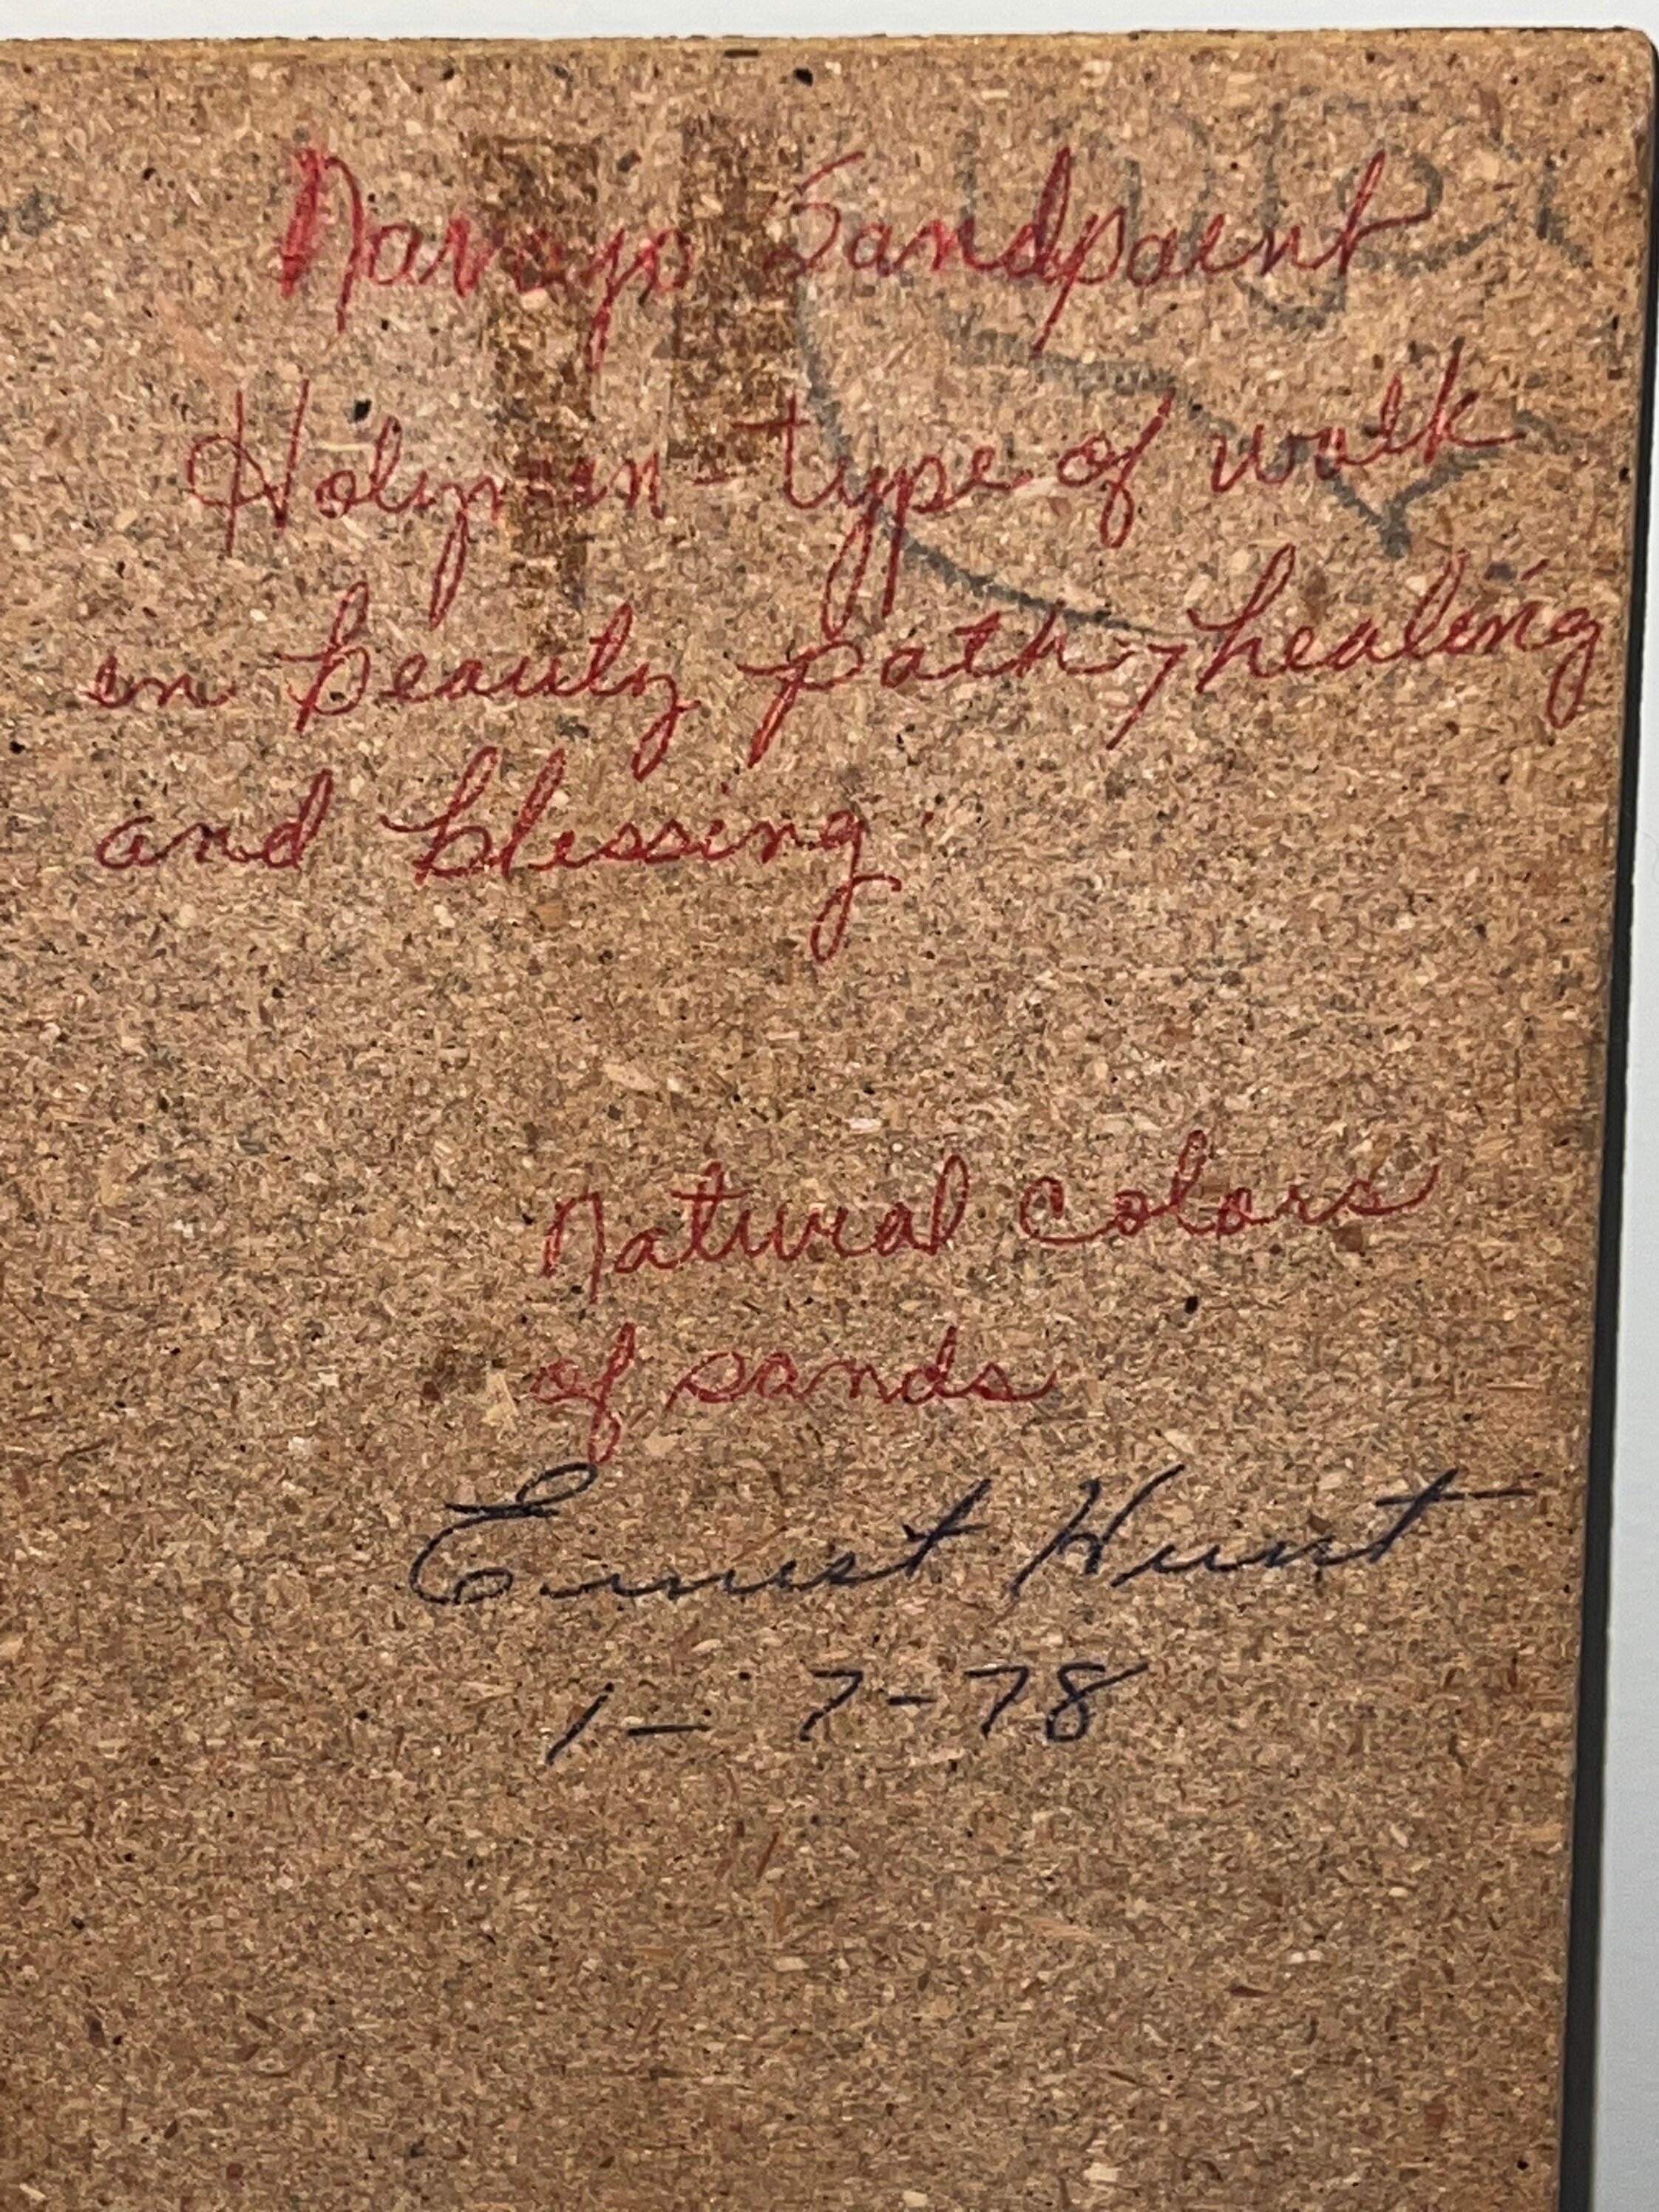 Navajo Sandpaint
Holyman-type of walk
in beauty path, healing
and blessing
Natural Colors
of sands
Ernest Hunt
1-7-78